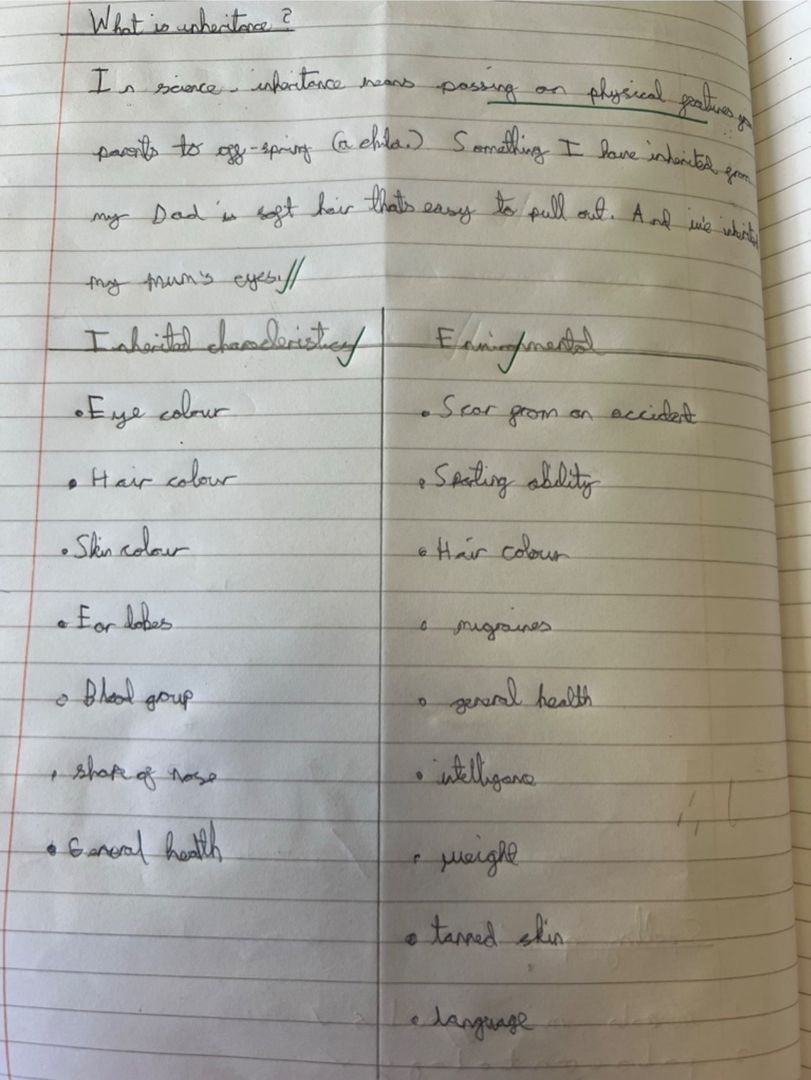 What is inheritance?
In science, inheritance means passing on physical features
parents to off-spring (a child.) Something I have inherited from
my Dad is soft hair thats easy to pull out. And
my mum's eyes.
Inherited characteristics Environmental
• Eye colour • Scar from an accident
• Hair colour • Sporting ability
• Skin colour • Hair colour
• Ear lobes • migraines
• Blood group • general health
• shape of nose • intelligence
• General health • weight
• tanned skin
• language